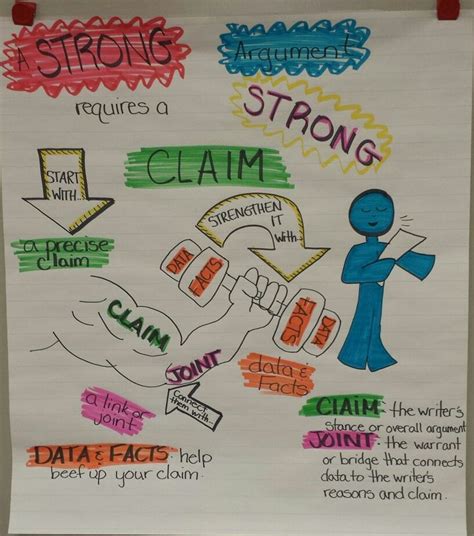 A STRONG Argument
requires a STRONG
CLAIM
START
WITH...
a precise
claim
STRENGTHEN
IT
With...
DATA
FACTS
CLAIM
JOINT
DATA
FACTS
data &
Facts
a link or
joint
Connect
them with...
DATA & FACTS- help
beef up your claim.
CLAIM- the writer's
stance or overall argument
JOINT- the warrant
or bridge that connects
data to the writer's
reasons and claim.